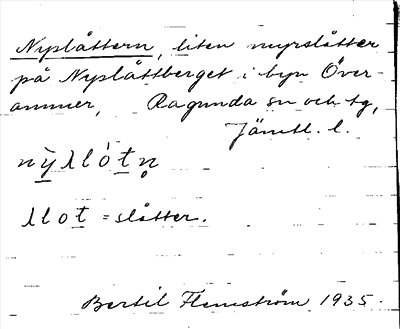 Nyslåttern, liten myrslåtter
på Nyslåttberget i byn Över-
ammer, Ragunda sn och tg,
Jämtl. l.
nỳλlo̔tn̥
λlot = slåtter.
Bertil Flemström 1935.